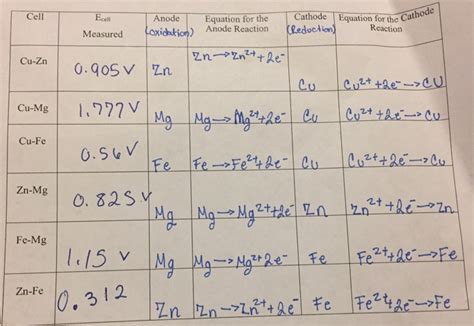 Cell E cell Measured Anode (oxidation) Equation for the Anode Reaction Cathode (Reduction) Equation for the Cathode Reaction
Cu-Zn 0.905 V Zn Zn→Zn²⁺+2e⁻ Cu Cu²⁺+2e⁻→Cu
Cu-Mg 1.777 V Mg Mg→Mg²⁺+2e⁻ Cu Cu²⁺+2e⁻→Cu
Cu-Fe 0.56 V Fe Fe→Fe²⁺+2e⁻ Cu Cu²⁺+2e⁻→Cu
Zn-Mg 0.825 V Mg Mg→Mg²⁺+2e⁻ Zn Zn²⁺+2e⁻→Zn
Fe-Mg 1.15 V Mg Mg→Mg²⁺ 2e⁻ Fe Fe²⁺+2e⁻→Fe
Zn-Fe 0.312 Zn Zn→Zn²⁺+2e⁻ Fe Fe²⁺+2e⁻→Fe